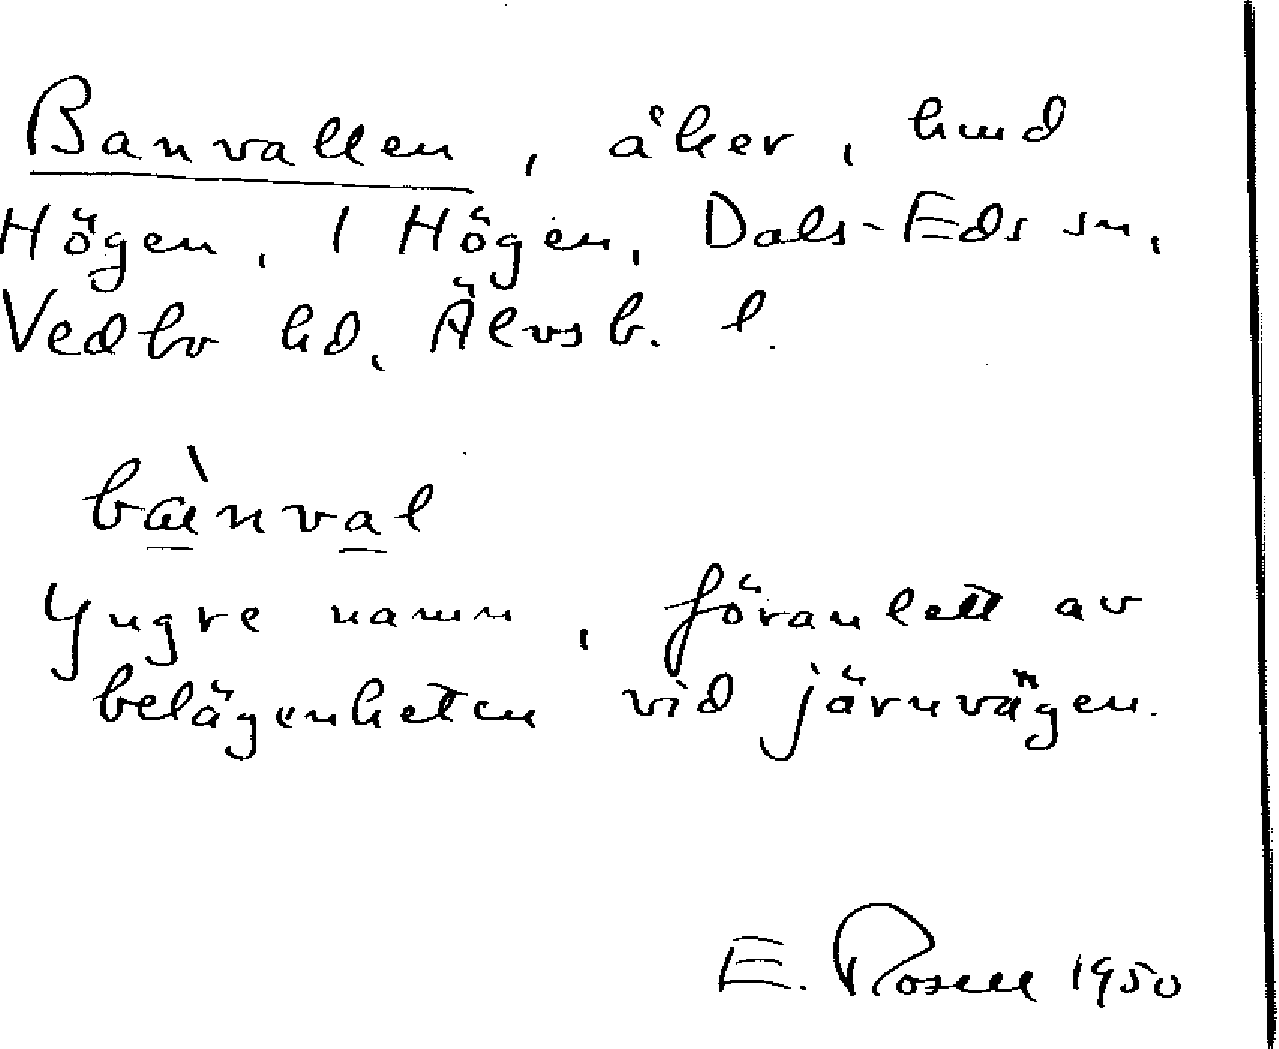 Banvallen, åker, hmd
Högen, 1 Högen, Dals-Eds sn,
Vedbo hd, Älvsb. l.
bànval
Yngre namn, föranlett av
belägenheten vid järnvägen.
E. Rosell 1950